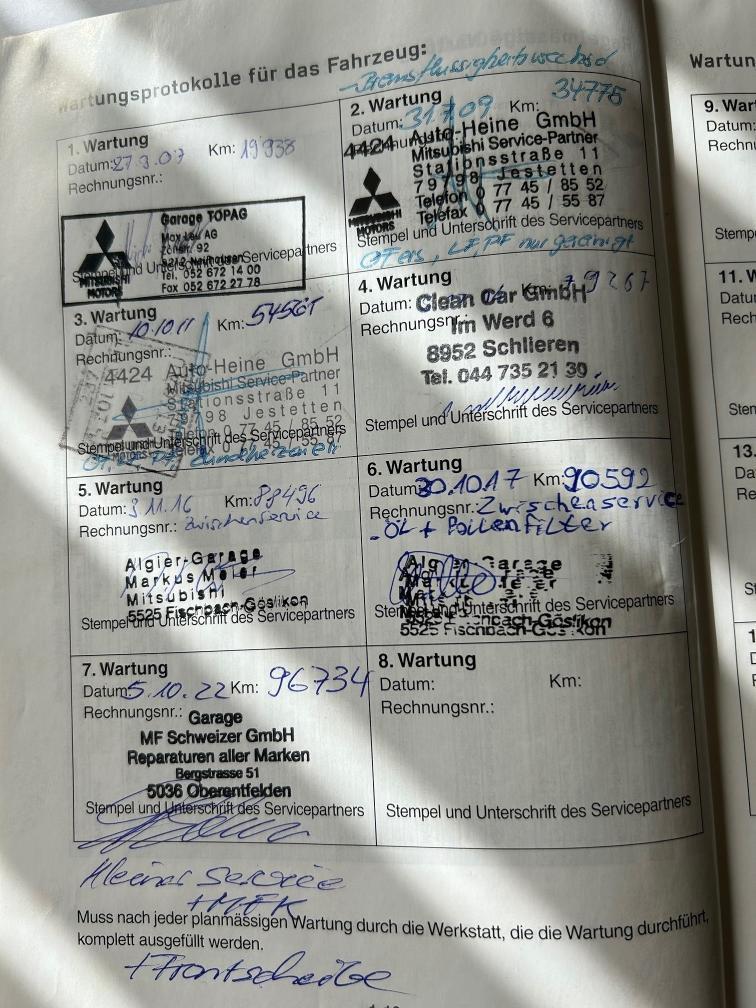 Wartungsprotokolle für das Fahrzeug:
Bremsflüssigkeitswechsel
1. Wartung
Datum: 27.3.07 Km: 19338
Rechnungsnr.:
Garage TOPAG
Max Leu AG
Zonen 92
8212 Neuhausen
Tel. 052 672 14 00
Fax 052 672 27 78
MITSUBISHI
MOTORS
Stempel und Unterschrift des Servicepartners
2. Wartung
Datum: 31.7.09 Km: 34775
4424 Auto-Heine GmbH
Mitsubishi Service-Partner
Stationsstraße 11
79798 Jestetten
Telefon 0 77 45 / 85 52
Telefax 0 77 45 / 55 87
MITSUBISHI
MOTORS
Stempel und Unterschrift des Servicepartners
LF, PF nur gereinigt
3. Wartung
Datum: 10.10.11 Km:
Rechnungsnr.:
4424 Auto-Heine GmbH
Mitsubishi Service-Partner
Stationsstraße 11
79798 Jestetten
Telefon 0 77 45 / 85 52
Telefax 0 77 45 / 55 87
Stempel und Unterschrift des Servicepartners
4. Wartung
Datum: Km: 79267
Rechnungsnr.:
Clean Car GmbH
Im Werd 6
8952 Schlieren
Tel. 044 735 21 39
Stempel und Unterschrift des Servicepartners
5. Wartung
Datum: 3.11.16 Km: 88496
Rechnungsnr.: Zwischenservice
Algier-Garage
Markus Meier
Mitsubishi
5525 Fischbach-Göslikon
Stempel und Unterschrift des Servicepartners
6. Wartung
Datum: 30.10.17 Km: 90592
Rechnungsnr.: Zwischenservice
- ÖL + Pollenfilter
Algier-Garage
Markus Meier
Mitsubishi
5525 Fischbach-Göslikon
Stempel und Unterschrift des Servicepartners
7. Wartung
Datum: 5.10.22 Km: 96734
Rechnungsnr.:
Garage
MF Schweizer GmbH
Reparaturen aller Marken
Bergstrasse 51
5036 Oberentfelden
Stempel und Unterschrift des Servicepartners
8. Wartung
Datum: Km:
Rechnungsnr.:
Stempel und Unterschrift des Servicepartners
Kleiner Service
+ MFK
Muss nach jeder planmässigen Wartung durch die Werkstatt, die die Wartung durchführt,
komplett ausgefüllt werden.
+ Frontscheibe
Wartun
9. Wart
Datum:
Rechn
Stemp
11. W
Datu
Rech
Sten
13.
Da
Re